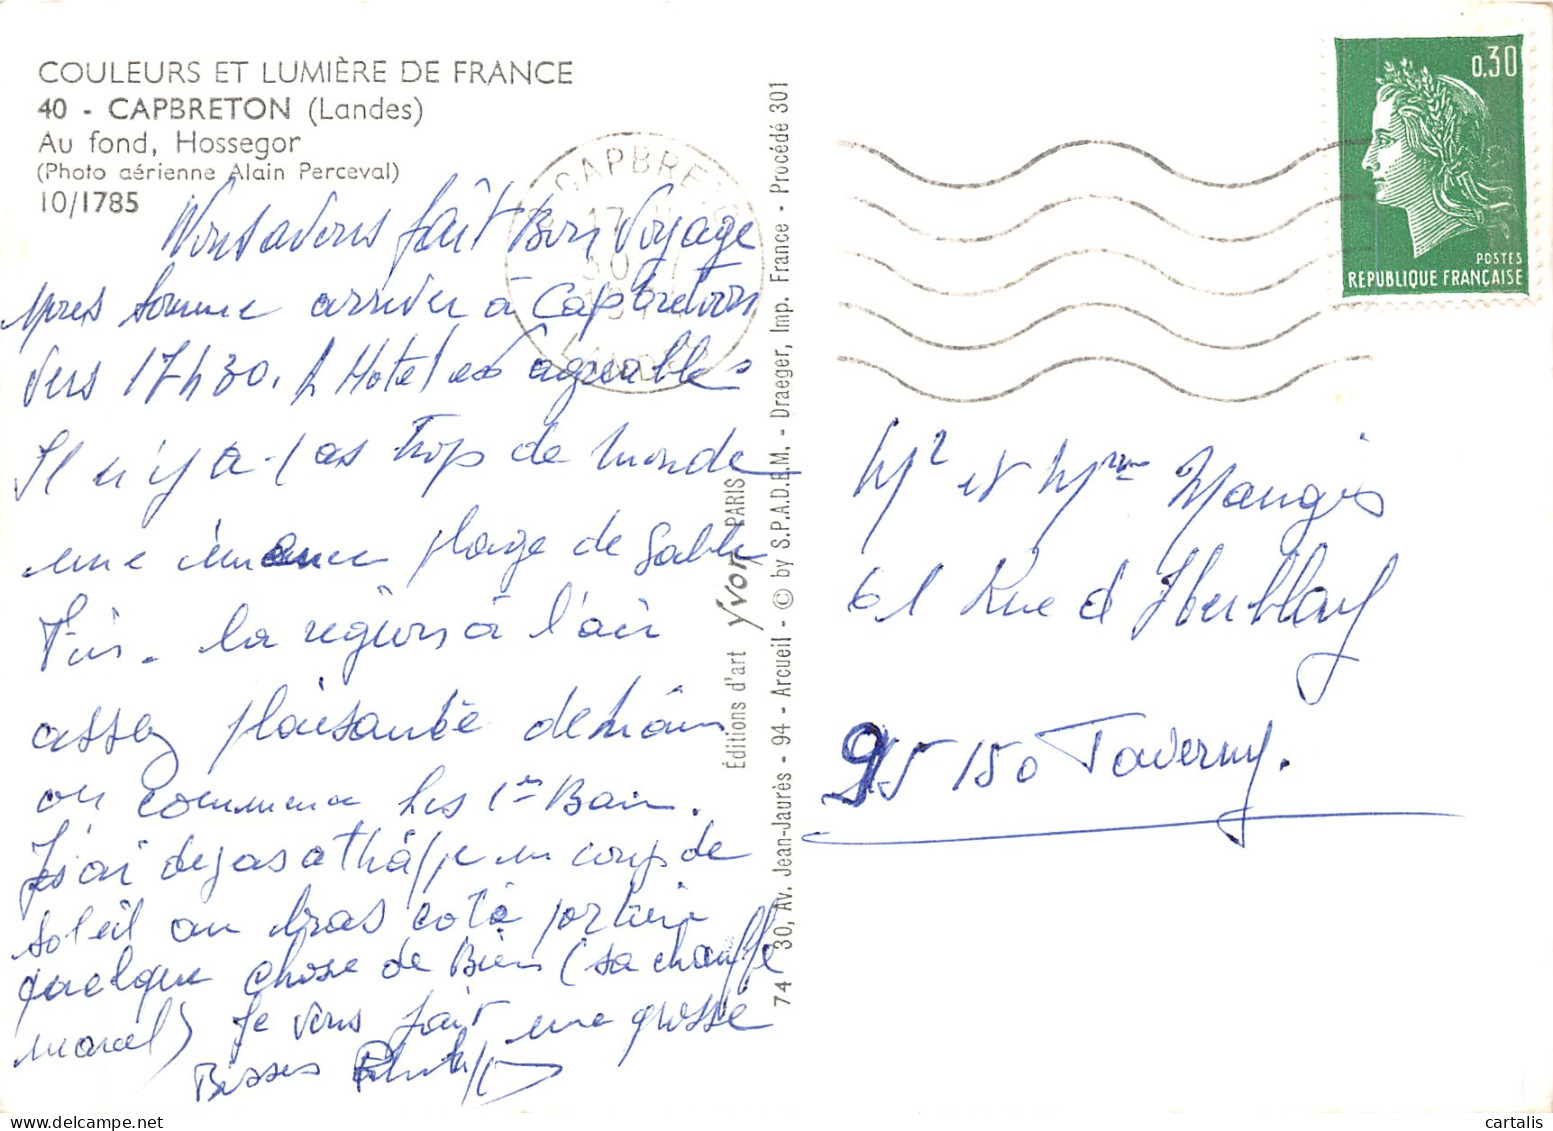 COULEURS ET LUMIÈRE DE FRANCE
40 - CAPBRETON (Landes)
Au fond, Hossegor
(Photo aérienne Alain Perceval)
10/1785
CAPBRETON
17 H
30
LANDES
0,30
POSTES
RÉPUBLIQUE FRANÇAISE
Nous avons fait Bon Voyage
somme arriver à Capbreton
Vers 17h30. Hotel agreable
Il n'y a pas trop de monde
une plage de sable
Fin. la region à l'air
assez plaisante demain
on commence les 1er Bain.
J'ai deja attrappe un coup de
soleil au bras coté portiere
quelque chose de Bien (sa chauffe
marcel) Je vous fait une grosse
Bisses
Éditions d'art Yvon PARIS
74 30, Av. Jean-Jaurès - 94 - Arcueil - © by S.P.A.D.E.M. - Draeger, Imp. France - Procédé 301
Mr et Mme Mangis
61 Rue d Herblay
95150 Taverny.
cartalis